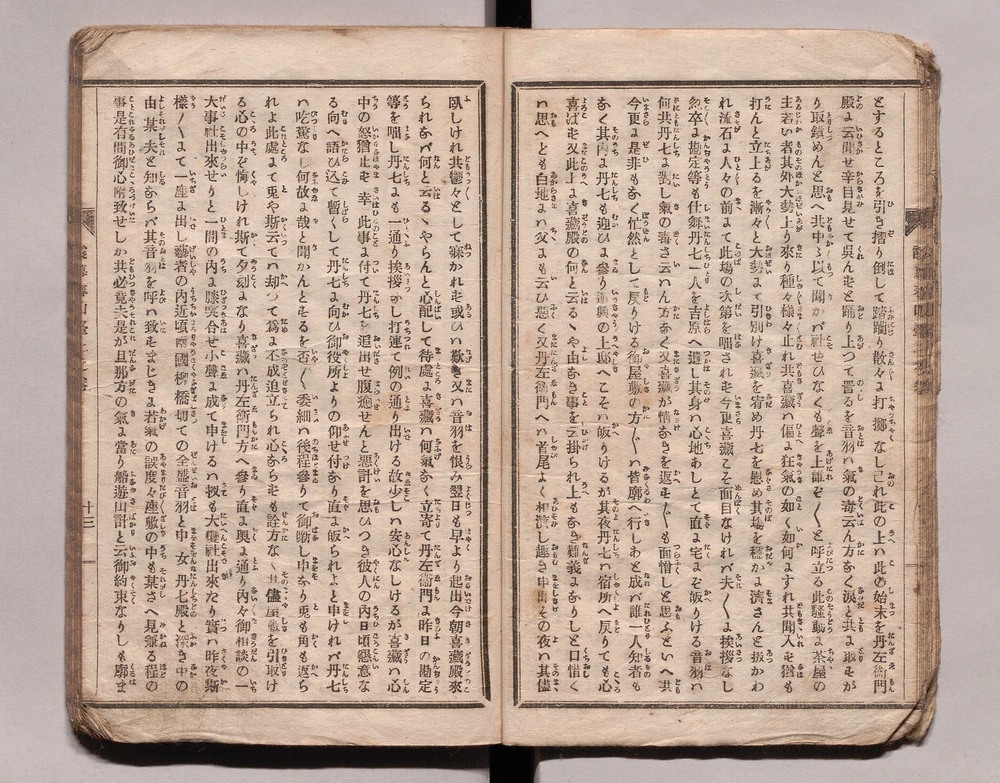 とするところを引き摺り倒して踏蹴り散々に打擲なしこれ此の上ハ此の始末を丹左衞門
殿に云聞せ辛目見せて呉んずと踊り上つて詈るを音羽ハ氣の毒云ん方なく涙と共に取すが
り取鎮めんと思へ共中々以て聞かバ社せひなくも聲を上誰ぞ〳〵と呼立る此騷動に茶屋の
主若い者其外大勢上り來り種々様々止れ共喜藏ハ偏に狂氣の如く如何にすれ共聞入ず猶も
打んと立上るを漸々と大勢にて引別け喜藏を宥め丹七を慰め其場を穩かに濟さんと扱かわ
れ流石に人々の前にて此場の次第を咄されず今更喜藏こそ面目なけれバ夫〳〵に挨拶なし
忽卒に勘定等も仕舞丹七一人を吉原へ遺し其身ハ心地あしとて直に宅にぞ皈りける音羽ハ
何共丹七に對し氣の毒さ云ハん方なく又喜藏が情なさを返す〴〵も面憎しと思ふといへ共
今更に是非もなく忙然として戻りける御屋敷の方〴〵ハ皆廓へ行しあと成バ誰一人知者も
なく其内に丹七も迎ひに參り連興の上邸へこそハ皈りけるが其夜丹七ハ宿所へ戻りても心
喜ばず又此上に喜藏殿の何と云るゝや由なき事を云掛られ上もなき難義になりしと口惜く
ハ思へども白地にハ父にも云ひ惡く又丹左衞門へハ首尾よく相濟し趣き申出その夜ハ其儘
臥しけれ共鬱々として寐かれず或ひハ歎き又ハ音羽を恨み翌日も早より起出今朝喜藏殿來
られなバ何と云るゝやらんと心配して待處に喜藏ハ何氣なく立寄て丹左衞門に昨日の勘定
等を咄し丹七にも一通り挨拶なし打連て例の通り出ける故少しハ安心なしけるが喜藏ハ心
中の怒猶止ず幸ひ此事に付て丹七を追出せ腹癒せんと惡計を思ひつき彼人の内日頃懇意な
る向へ語ひ込て暫くして丹七に向ひ御役所よりの仰せ付なり直に皈られよと申けれバ丹七
ハ吃驚なし何故にもやと聞かんとするを否〳〵委細ハ後程參りて御咄し申なり兎も角も返ら
れよ此處にてと兎や斯云てハ却つて爲に不成迫立られ心ならずも詮方なく其儘屋敷を引取け
る心の中ぞ悔しけれ斯て夕刻になり喜藏ハ丹左衞門方へ參り直に奥に通り内々御相談の一
大事社出來せりと一間の内に膝突合せ小聲に成て申けるハ扨も大變社出來たり實ハ昨夜斯
様〳〵にて一座に出し藝者の内近頃兩國柳橋切ての全盛音羽と申女丹七殿と深き中の
由某夫と知ならバ其音羽を呼ハ致すまじきに若氣の誤度々座敷の中も某さへ見兼る程の
事是有間御心附致せしか共必竟夫是が旦那方の氣に當り船遊山計と云御約束なりしも廓に
十三